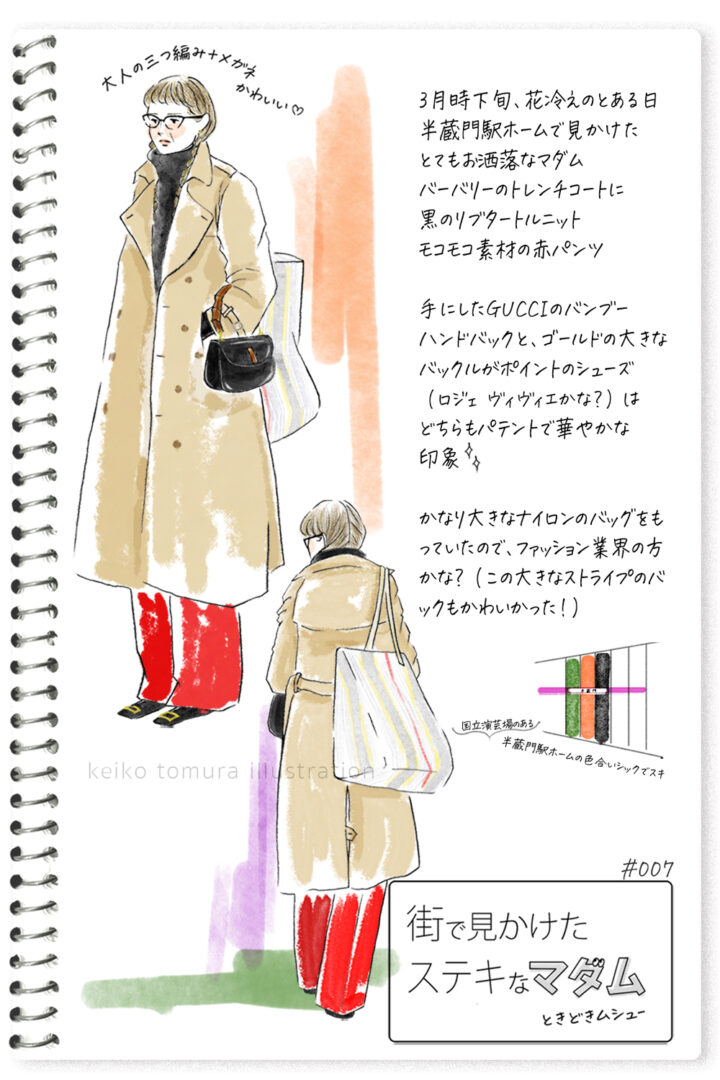 大人の三つ編み+メガネ
かわいい♡
3月時下旬、花冷えのとある日
半蔵門駅ホームで見かけた
とてもお洒落なマダム
バーバリーのトレンチコートに
黒のリブタートルニット
モコモコ素材の赤パンツ
手にしたGUCCIのバンブー
ハンドバックと、ゴールドの大きな
バックルがポイントのシューズ
（ロジェ ヴィヴィエかな？）は
どちらもパテントで華やかな
印象
かなり大きなナイロンのバッグをも
っていたので、ファッション業界の方
かな？（この大きなストライプのバ
ックもかわいかった！）
半蔵門
国立演芸場のある
半蔵門駅ホームの色合いシックでスキ
keiko tomura illustration
#007
街で見かけた
ステキなマダム
ときどきムシュー